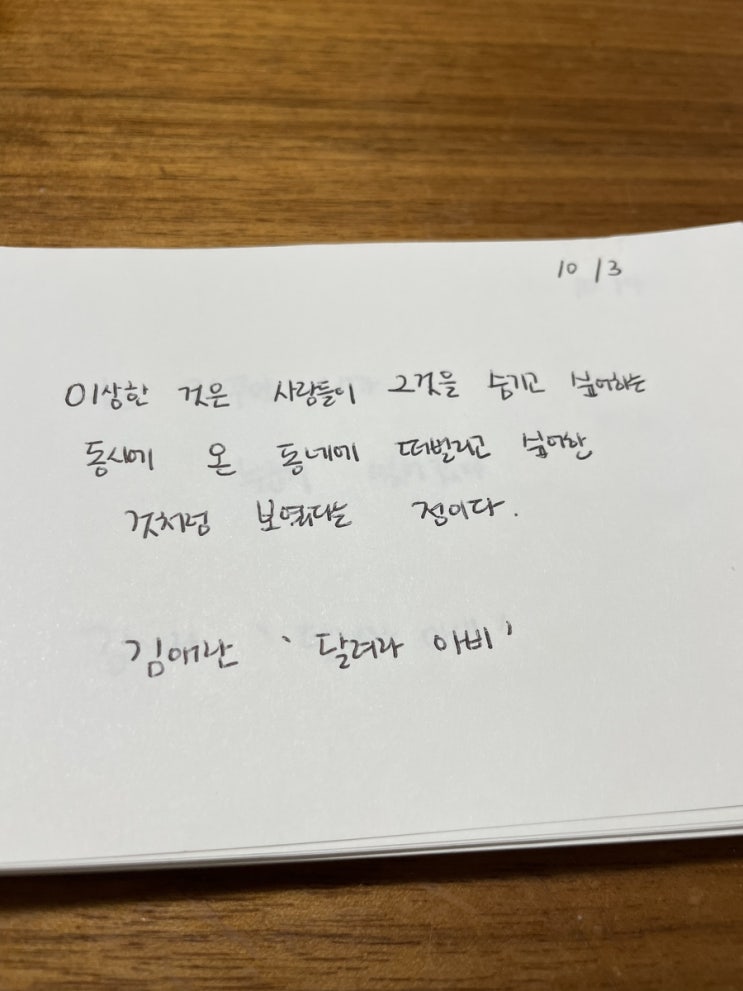 10/3
이상한 것은 사람들이 그것을 숨기고 싶어하는
동시에 온 동네에 떠벌리고 싶어한
것처럼 보였다는 점이다.
김애란 '달려라 아비'